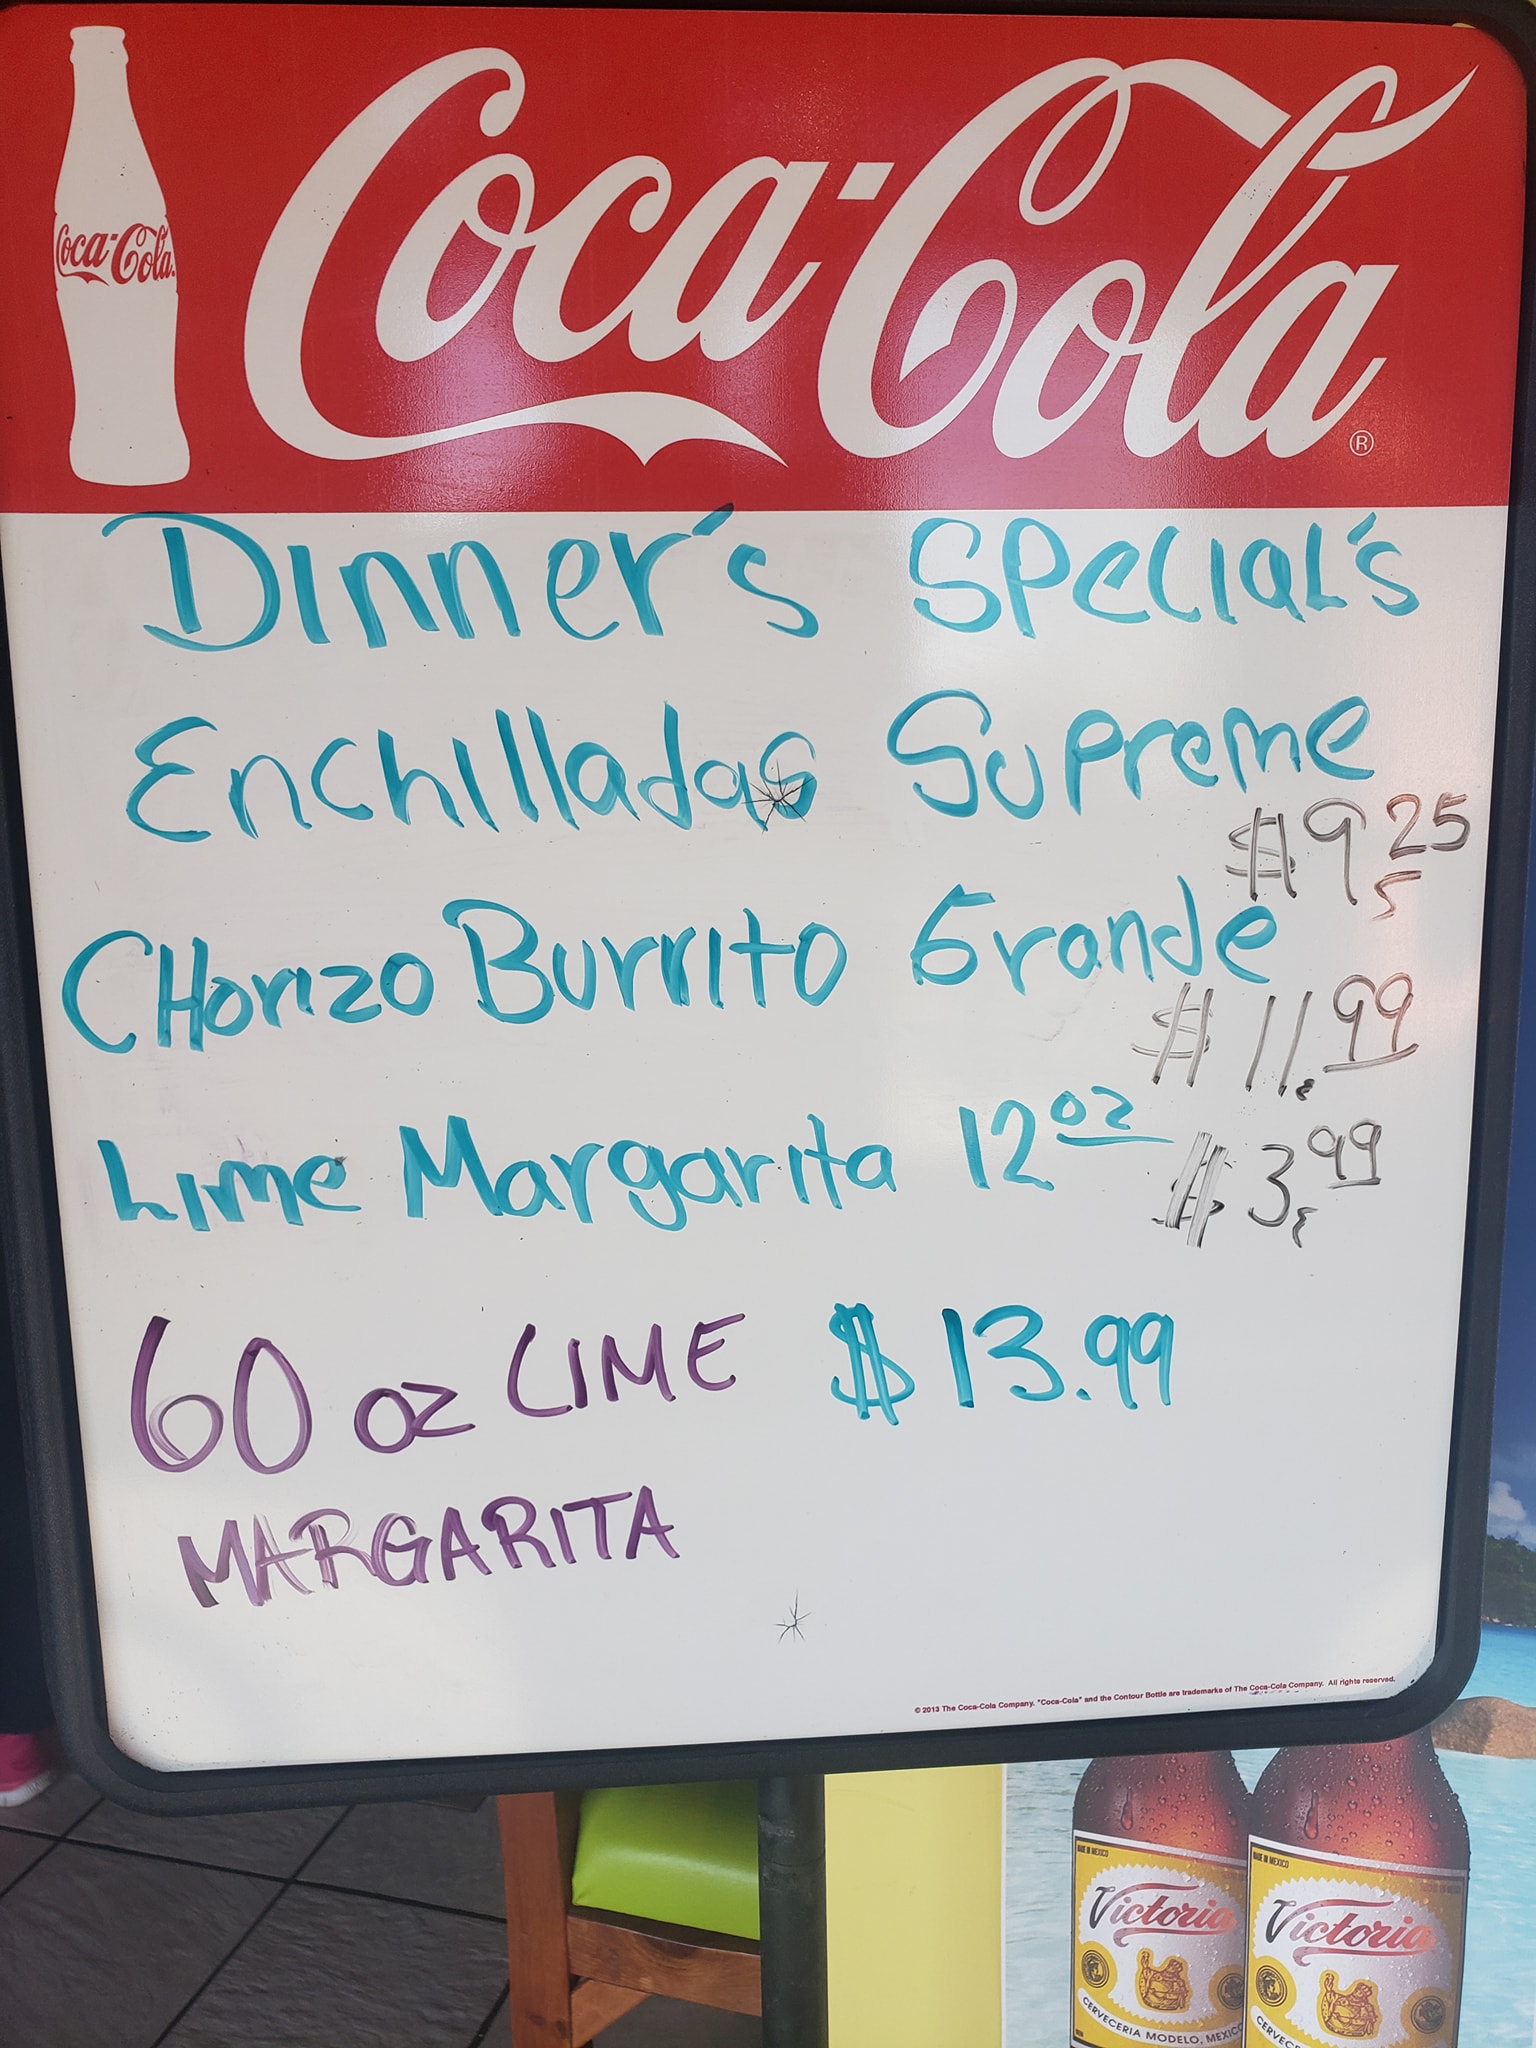 Coca-Cola
Coca-Cola®
Dinner's Special's
Enchilladas Supreme
$9 25
CHorizo Burrito Grande
$11.99
Lime Margarita 12 oz $3.99
60 oz LIME $13.99
MARGARITA
© 2013 The Coca-Cola Company. "Coca-Cola" and the Contour Bottle are trademarks of The Coca-Cola Company. All rights reserved.
MADE IN MEXICO
MADE IN MEXICO
Victoria
Victoria
CERVECERIA MODELO, MEXICO
CERVECE